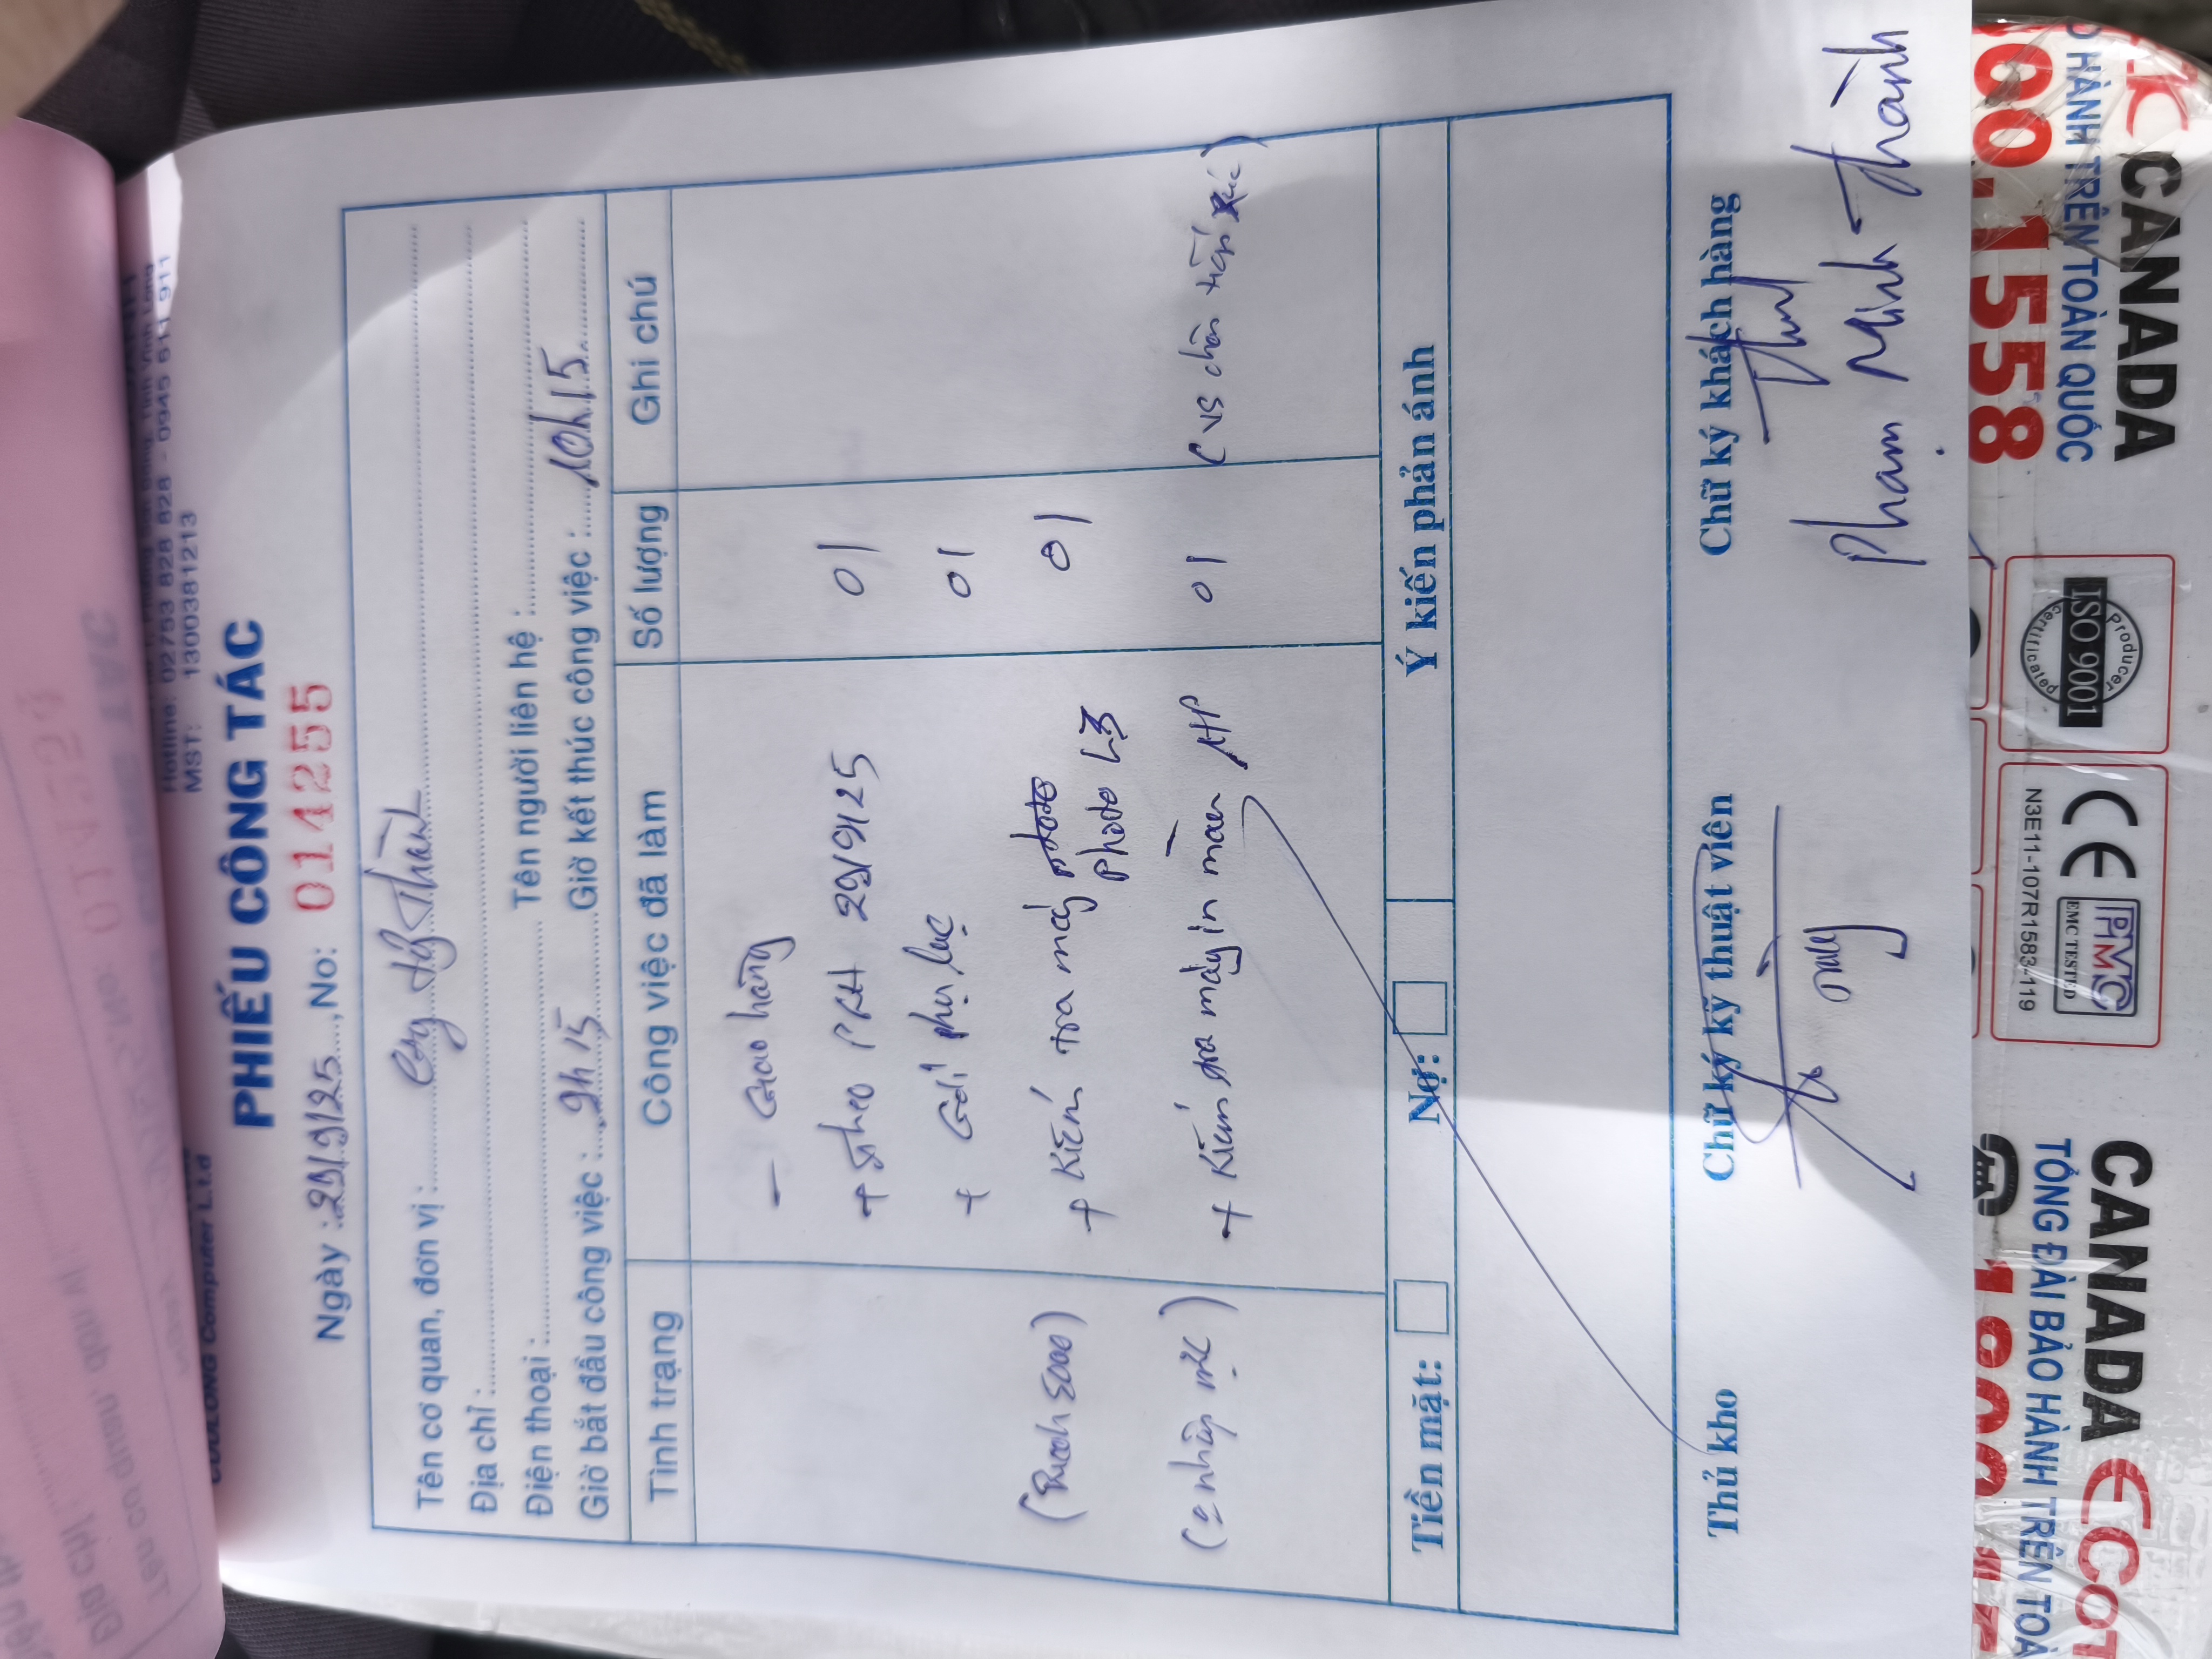 Computer L.t.d
Hotline: 02753 828 828 - 0945 511 911
MST: 1300381213
PHIẾU CÔNG TÁC
Ngày : 29/9/25 , No: 014255
Tên cơ quan, đơn vị : Cty
Địa chỉ :
Điện thoại : Tên người liên hệ :
Giờ bắt đầu công việc : 9h15 Giờ kết thúc công việc : 10h15
Tình trạng Công việc đã làm Số lượng Ghi chú
- Giao hàng
+ Theo PXH 29/9/25 01
+ Gửi phụ lục 01
(Ricoh 5000) + Kiểm tra máy Photo L3 01
+ Kiểm tra máy in màu HP 01 (VS chân tiếp xúc)
Tiền mặt: Nợ: Ý kiến phản ánh
Thủ kho Chữ ký kỹ thuật viên Chữ ký khách hàng
Phạm Minh Thành
CANADA
TỔNG ĐÀI BẢO HÀNH TRÊN TOÀ
N3E11-107R1583-119
CE
PMC
EMC TESTED
ISO 9001
Producer
certificated
CANADA
HÀNH TRÊN TOÀN QUỐC
00.1558